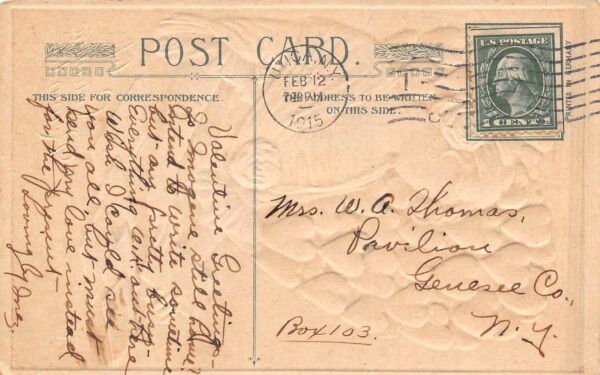 POST CARD.
THIS SIDE FOR CORRESPONDENCE.
THE ADDRESS TO BE WRITTEN
ON THIS SIDE.
UTICA, N.Y.
FEB 12
7-PM
1915
U.S. POSTAGE
1 CENT 1
PRINTED IN GERMANY
Valentine Greetings-
Is Imogene still home?
Intend to write sometime
but am pretty busy-
Everything out
Wish I could see
you all, but must
send my love instead
for the present-
Lovingly Inez.
Mrs. W. A. Thomas,
Pavilion
Genesee Co.,
N.Y.
Box 103.